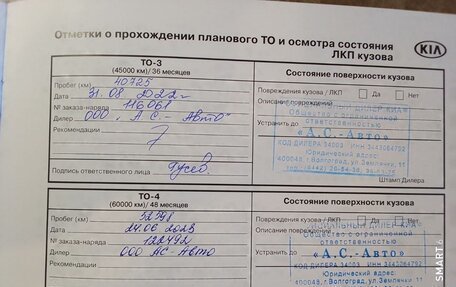 Отметки о прохождении планового ТО и осмотра состояния
ЛКП кузова
KIA
ТО-3
(45000 км) / 36 месяцев
Состояние поверхности кузова
Пробег (км) 40725
Повреждения кузова / ЛКП Да Нет
Дата 31.08.2022г.
Описание повреждений
№ заказ-наряда 116061
Дилер ООО „АС-Авто"
Устранить до
Рекомендации
ОФИЦИАЛЬНЫЙ ДИЛЕР КИА
Общество с ограниченной
ответственностью
«А.С.-Авто»
КОД ДИЛЕРА 34003 ИНН 3443064792
Юридический адрес:
400048, г.Волгоград, ул.Землячки,
Подпись ответственного лица
Штамп Дилера
ТО-4
(60000 км) / 48 месяцев
Состояние поверхности кузова
Пробег (км) 52798
Повреждения кузова / ЛКП Да Нет
Дата 24.06.2023
Описание повреждений
№ заказ-наряда 122492
Дилер ООО АС-Авто
Устранить до
Рекомендации
ОФИЦИАЛЬНЫЙ ДИЛЕР КИА
Общество с ограниченной
ответственностью
«А.С.-Авто»
КОД ДИЛЕРА 34003 ИНН 3443064792
Юридический адрес:
400048, г.Волгоград, ул.Землячки
SMART